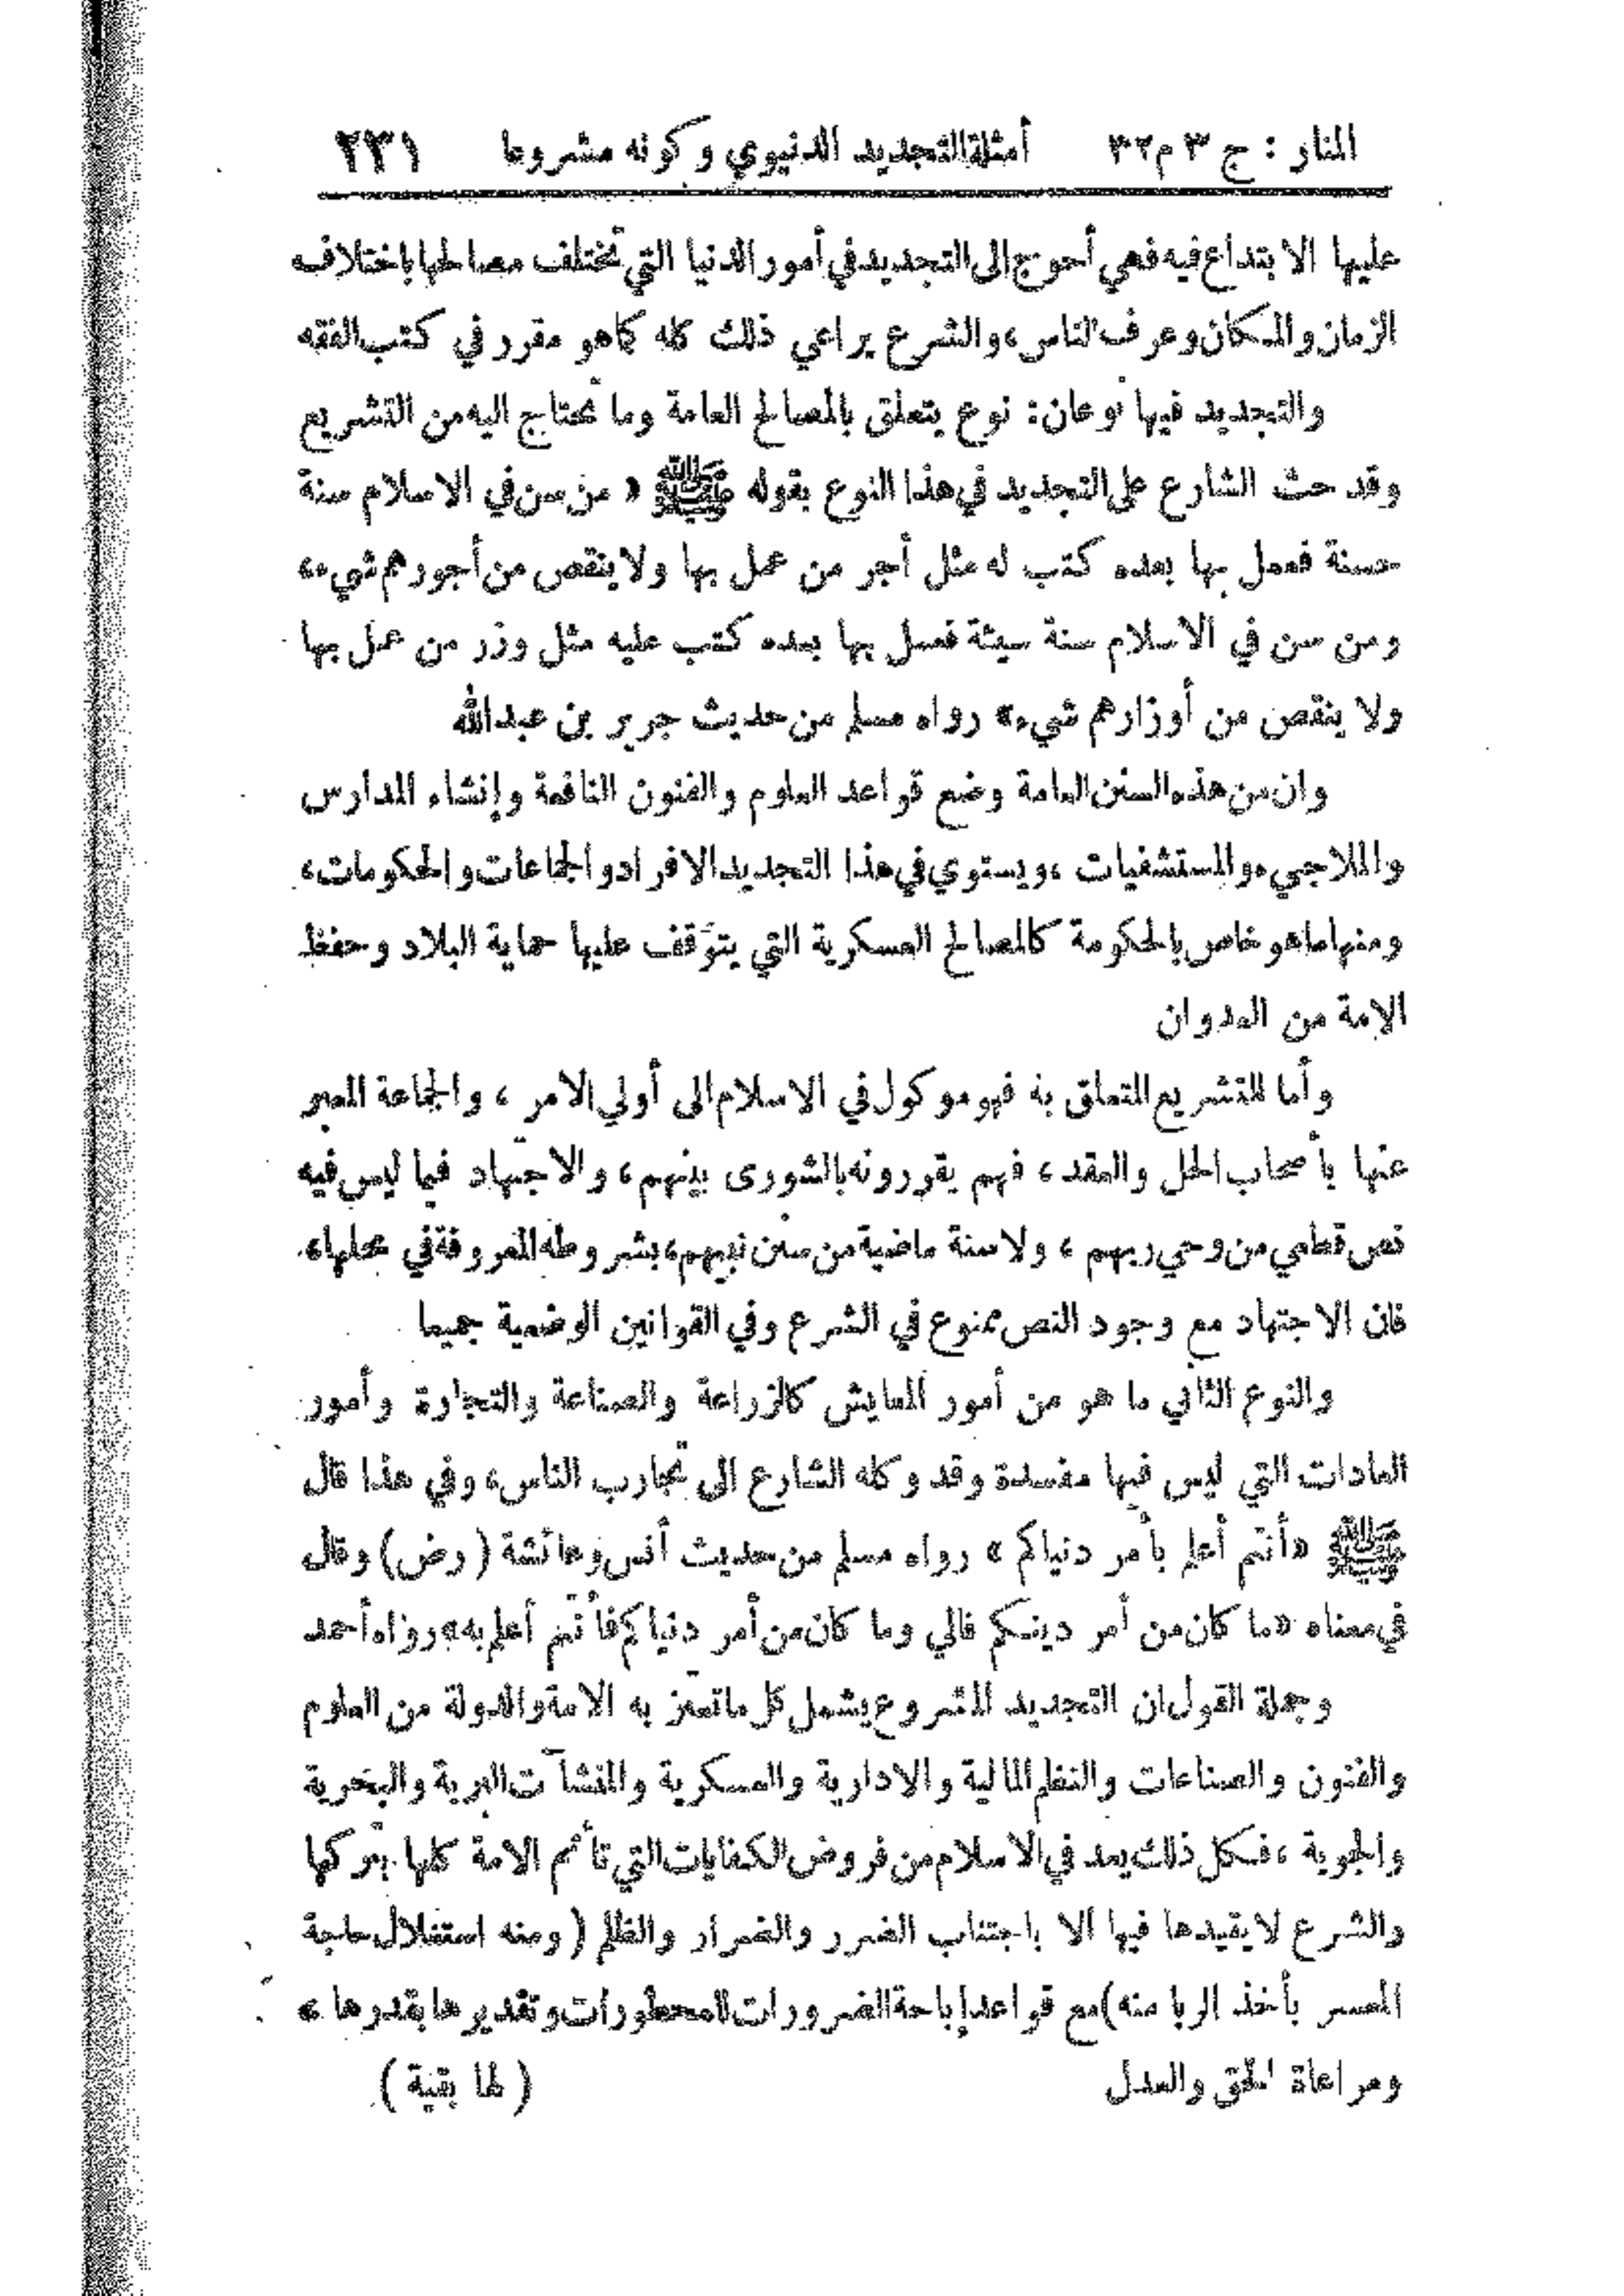 المنار : ج ٣ م ٣٢ أمثلة التجديد الدنيوي وكونه مشروعا ٢٣١
عليها الابتداع فيه فهي أحوج الى التجديد في أمور الدنيا التي تختلف مصالحها باختلاف
الزمان والمكان وعرف الناس، والشرع يراعي ذلك كله كما هو مقرر في كتب الفقه
والتجديد فيها نوعان: نوع يتعلق بالمصالح العامة وما تحتاج اليه من التشريع
وقد حث الشارع على التجديد في هذا النوع بقوله ﷺ « من سن في الاسلام سنة
حسنة فعمل بها بعده كتب له مثل أجر من عمل بها ولا ينقص من أجورهم شيء،
ومن سن في الاسلام سنة سيئة فعمل بها بعده كتب عليه مثل وزر من عمل بها
ولا ينقص من أوزارهم شيء» رواه مسلم من حديث جرير بن عبد الله
وان من هذه السنن العامة وضع قواعد العلوم والفنون النافعة وإنشاء المدارس
والملاجيء والمستشفيات ، ويستوي في هذا التجديد الافراد والجماعات والحكومات،
ومنها ما هو خاص بالحكومة كالمصالح العسكرية التي يتوقف عليها حماية البلاد وحفظ
الامة من العدوان
وأما التشريع المتعلق به فهو موكول في الاسلام الى أولي الامر ، والجماعة المعبر
عنها بأصحاب الحل والعقد ، فهم يقررونه بالشورى بينهم ، والاجتهاد فيما ليس فيه
نص قطعي من وحي ربهم ، ولا سنة ماضية من سنن نبيهم، بشروطه المعروفة في محلها،
فان الاجتهاد مع وجود النص ممنوع في الشرع وفي القوانين الوضعية جميعا
والنوع الثاني ما هو من أمور المعايش كالزراعة والصناعة والتجارة وأمور
العادات التي ليس فيها مفسدة وقد وكله الشارع الى تجارب الناس، وفي هذا قال
ﷺ «أنتم أعلم بأمر دنياكم » رواه مسلم من حديث أنس وعائشة (رض) وقال
في معناه «ما كان من أمر دينكم فالي وما كان من أمر دنياكم فأنتم أعلم به» رواه أحمد
وجملة القول ان التجديد المشروع يشمل كل ما تعتز به الامة والدولة من العلوم
والفنون والصناعات والنظم المالية والادارية والعسكرية والمنشآت البرية والبحرية
والجوية ، فكل ذلك يعد في الاسلام من فروض الكفايات التي تأثم الامة كلها بتركها
والشرع لا يقيدها فيها الا باجتناب الضرر والضرار والظلم (ومنه استغلال حاجة
المعسر بأخذ الربا منه) مع قواعد إباحة الضرورات للمحظورات وتقديرها بقدرها »
ومراعاة الحق والعدل ( لها بقية )